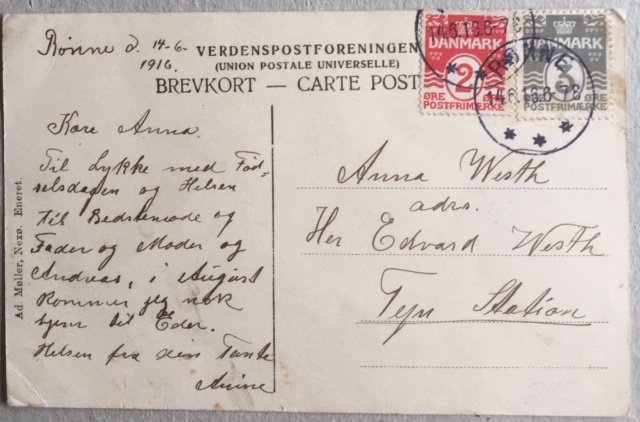 Rönne d. 14-6-
1916.
VERDENSPOSTFORENINGEN
(UNION POSTALE UNIVERSELLE)
BREVKORT — CARTE POST
DANMARK
2
ØRE
POSTFRIMÆRKE
DANMARK
3
ØRE
POSTFRIMÆRKE
14.6.16.6-7E
RØNNE
14.6.16.6-7E
Kære Anna.
Til Lykke med Föd-
selsdagen og Hilsen
til Bedstemode og
Fader og Moder og
Andreas, i August
kommer jeg nok
hjem til Eder.
Hilsen fra din Tante
Anine
Anna Westh
adrs.
Her Edvard Westh
Tejn Station
Ad. Møller, Nexø. Eneret.